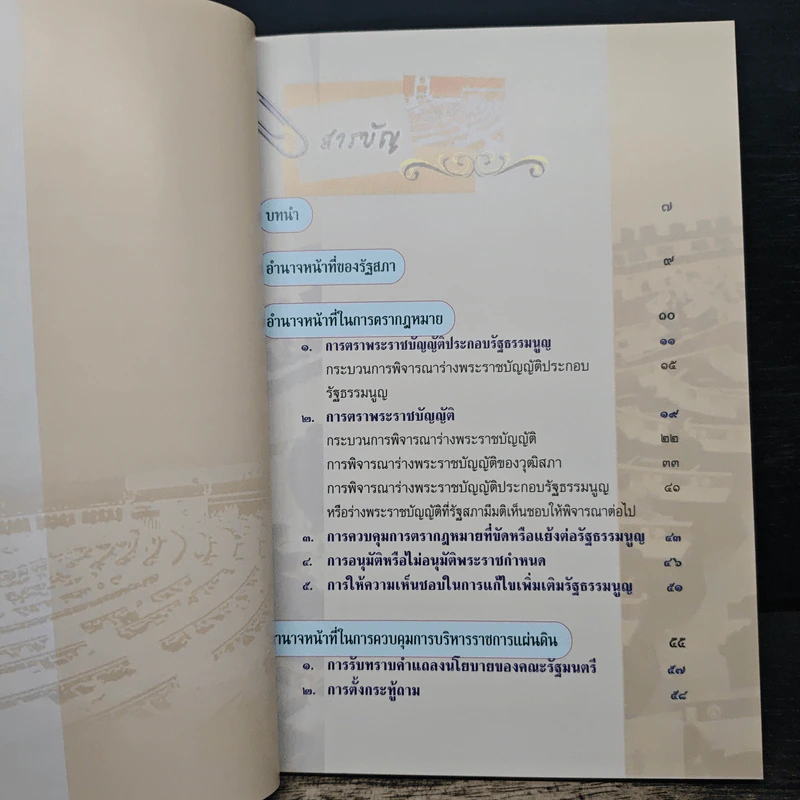 สารบัญ
บทนำ ๗
อำนาจหน้าที่ของรัฐสภา ๙
อำนาจหน้าที่ในการตรากฎหมาย ๑๐
๑. การตราพระราชบัญญัติประกอบรัฐธรรมนูญ ๑๑
กระบวนการพิจารณาร่างพระราชบัญญัติประกอบ ๑๕
รัฐธรรมนูญ
๒. การตราพระราชบัญญัติ ๑๙
กระบวนการพิจารณาร่างพระราชบัญญัติ ๒๒
การพิจารณาร่างพระราชบัญญัติของวุฒิสภา ๓๓
การพิจารณาร่างพระราชบัญญัติประกอบรัฐธรรมนูญ ๔๑
หรือร่างพระราชบัญญัติที่รัฐสภามีมติเห็นชอบให้พิจารณาต่อไป
๓. การควบคุมการตรากฎหมายที่ขัดหรือแย้งต่อรัฐธรรมนูญ ๔๓
๔. การอนุมัติหรือไม่อนุมัติพระราชกำหนด ๔๖
๕. การให้ความเห็นชอบในการแก้ไขเพิ่มเติมรัฐธรรมนูญ ๕๑
อำนาจหน้าที่ในการควบคุมการบริหารราชการแผ่นดิน ๕๕
๑. การรับทราบคำแถลงนโยบายของคณะรัฐมนตรี ๕๗
๒. การตั้งกระทู้ถาม ๕๘